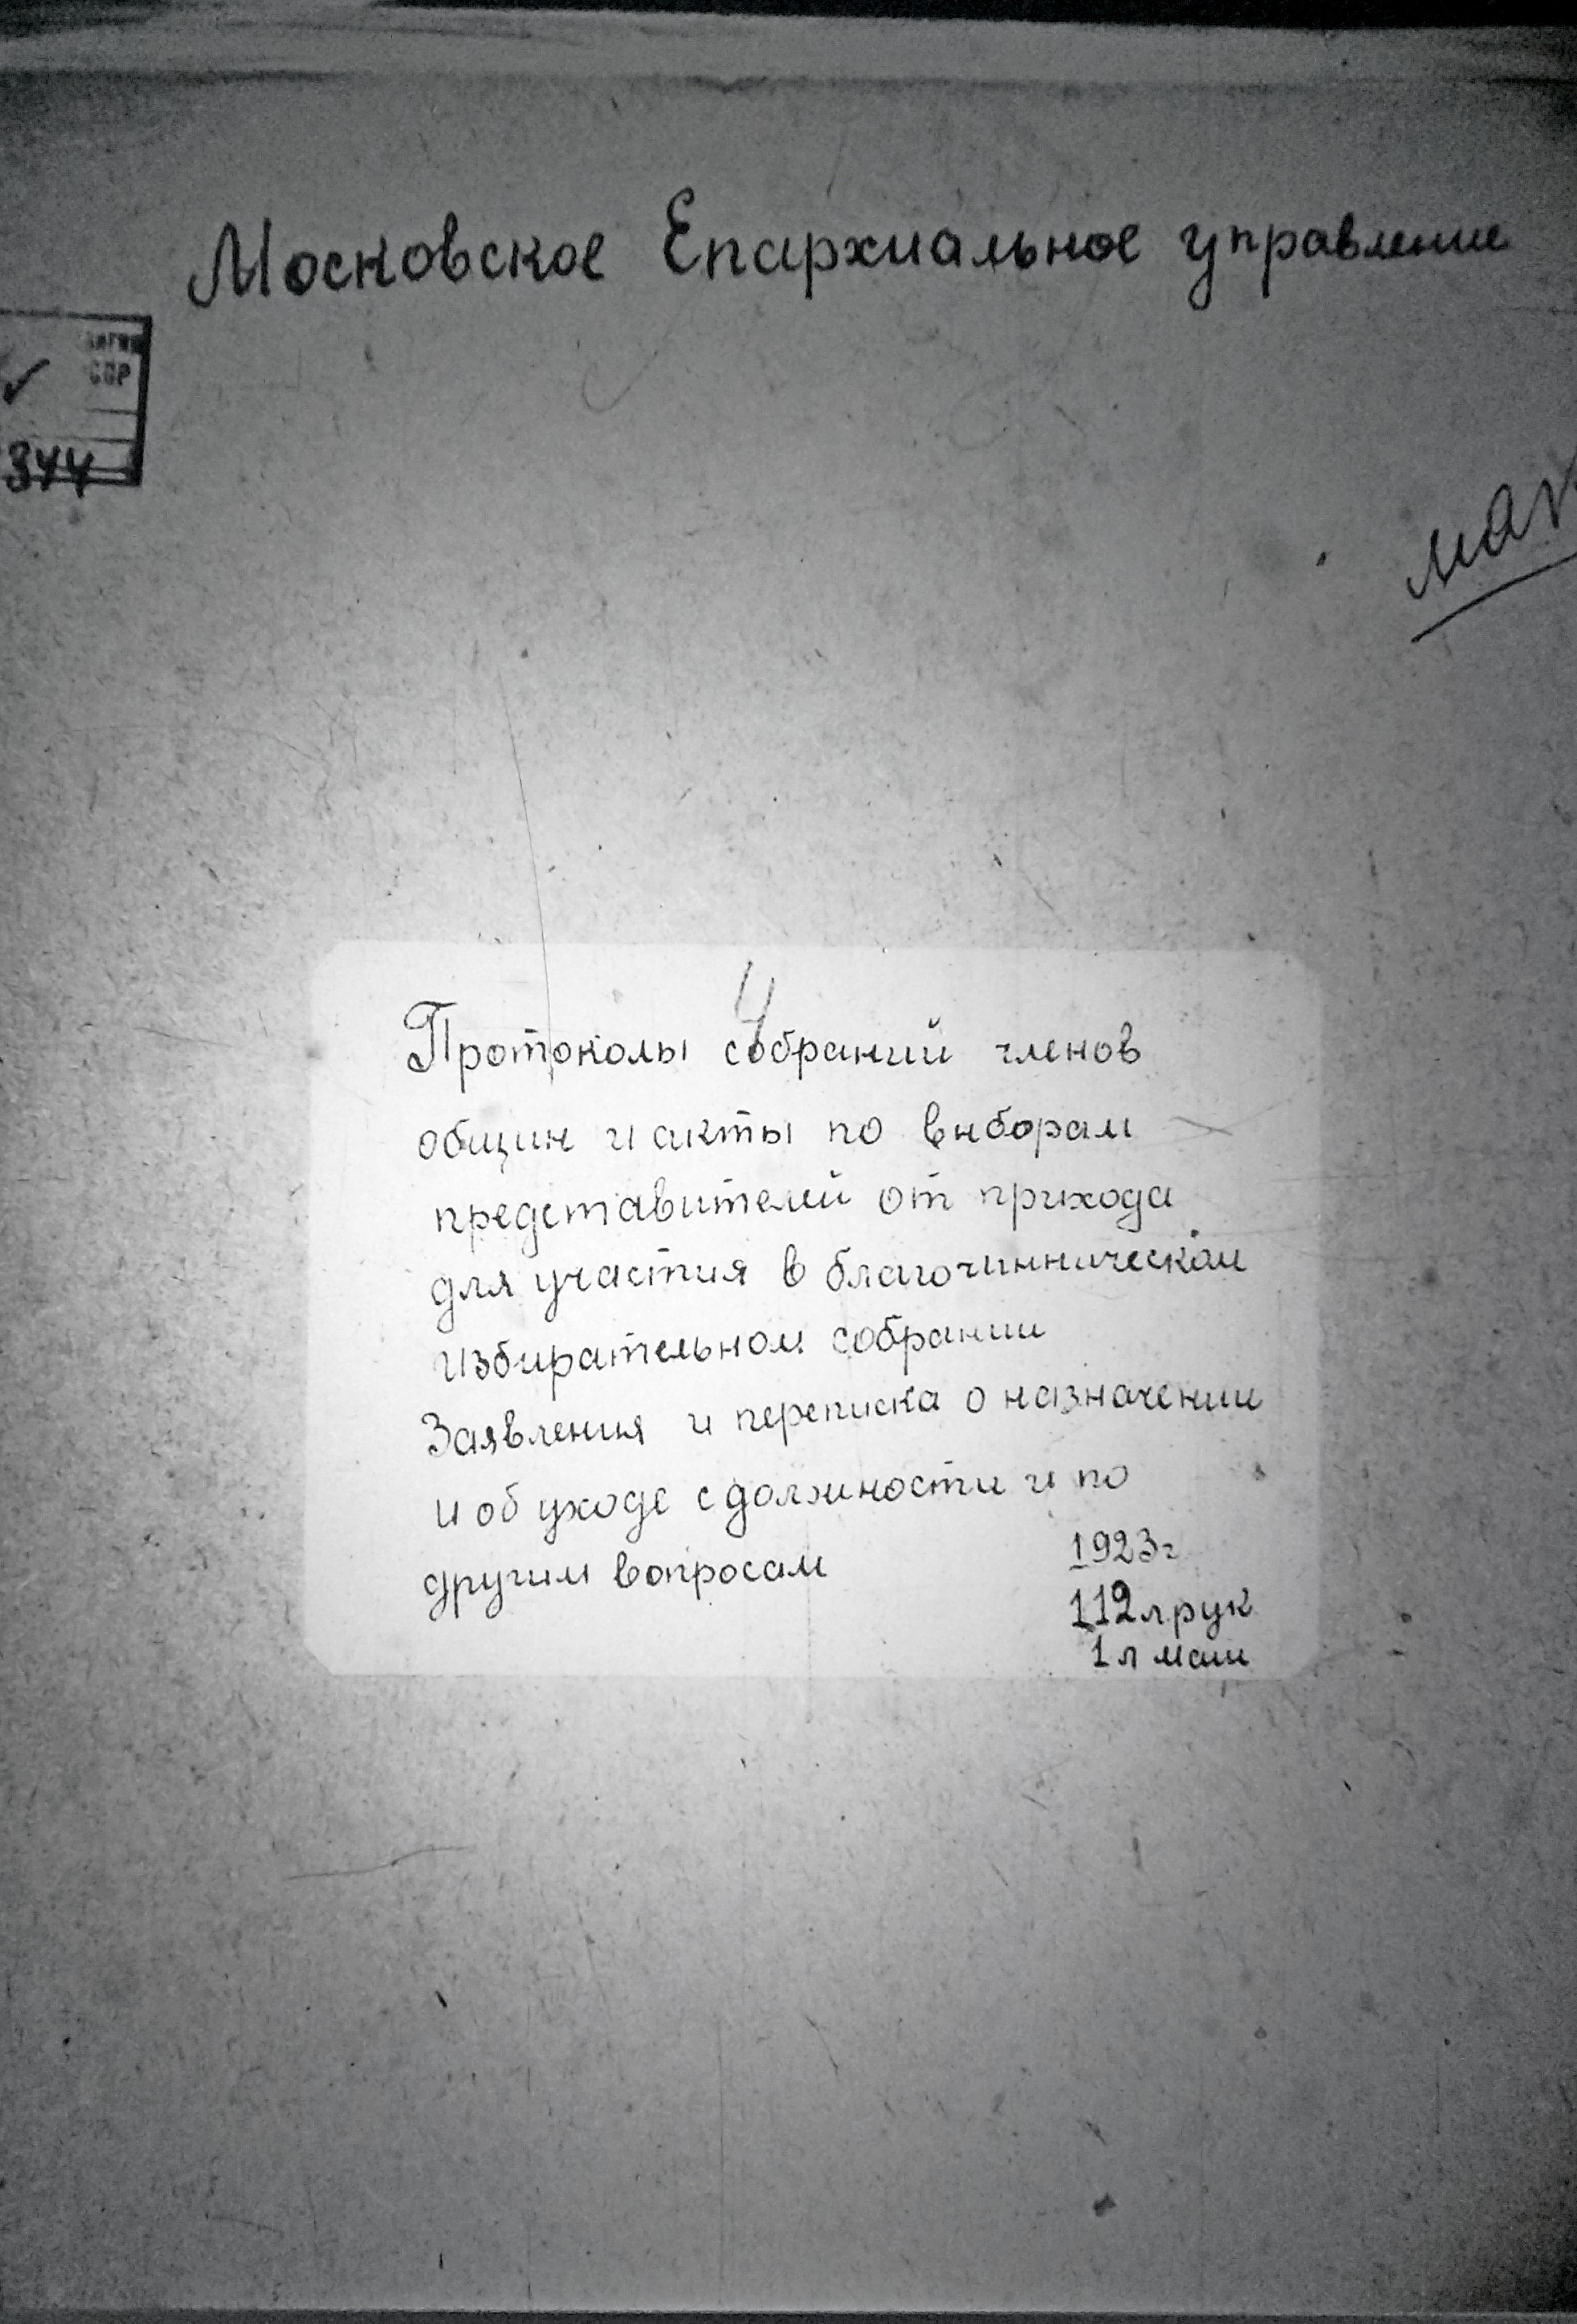 Московское Епархиальное управление
344
4
Протоколы собраний членов
общин и акты по выборам
представителей от прихода
для участия в благочинническом
избирательном собрании
Заявления и переписка о назначении
и об уходе с должности и по
другим вопросам
1923г
112л рук
1л маш